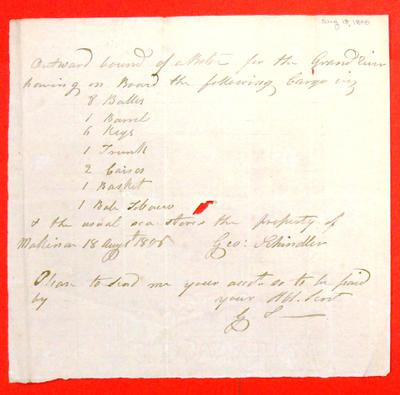 Aug 18, 1806
Outward bound of a Batoe for the Grand River
having on Board the following Cargo viz
8 Bales
1 Barrel
6 Kegs
1 Trunk
2 Caises
1 Basket
1 Bale Tobacco
& the usual sea stores the property of
Makinaw 18 Augt 1806 Geo: Schindler
Please to send me your acct. so to be paid
by your Hbl. Servt
G S